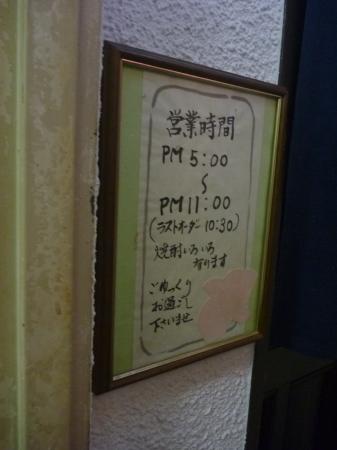 営業時間
PM 5:00
〜
PM 11:00
(ラストオーダー 10:30)
焼酎いろいろ
有ります
ごゆっくり
お過ごし
下さいませ